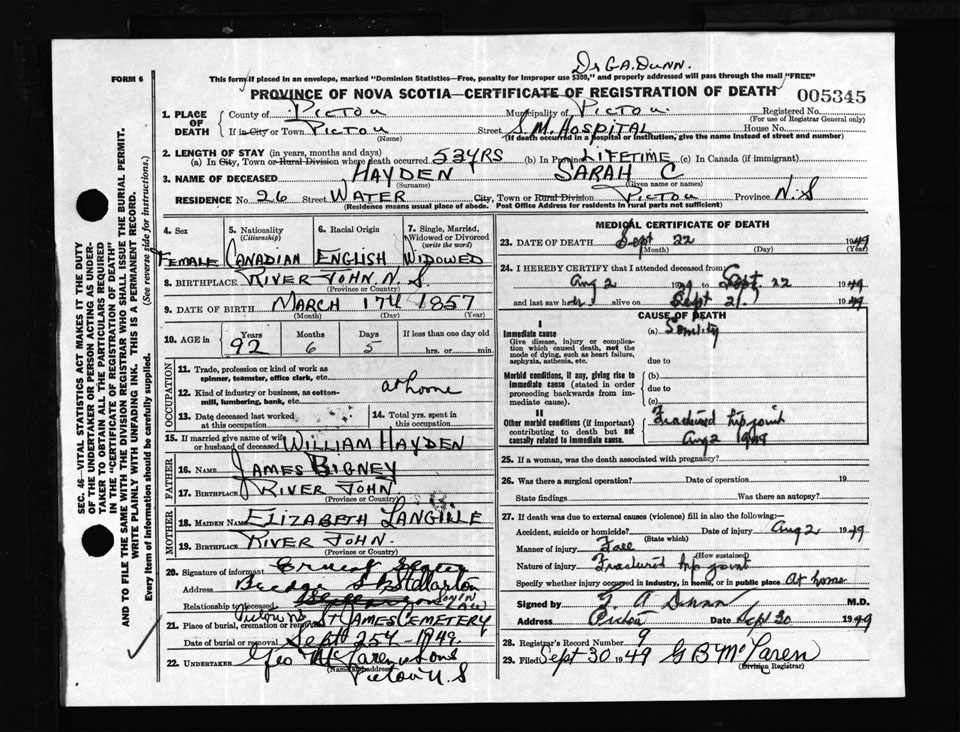 Dr GA. DUNN.
FORM 6
This form if placed in an envelope, marked "Dominion Statistics—Free, penalty for improper use $300," and properly addressed will pass through the mail "FREE"
PROVINCE OF NOVA SCOTIA—CERTIFICATE OF REGISTRATION OF DEATH 005345
1. PLACE OF DEATH { County of PICTOU Municipality of PICTOU Registered No.
(For use of Registrar General only)
If in City or Town PICTOU Street S.M. HOSPITAL House No.
(Name) (If death occurred in a hospital or institution, give the name instead of street and number)
2. LENGTH OF STAY (in years, months and days)
(a) In City, Town or Rural Division where death occurred 52 YRS (b) In Province LIFETIME (c) In Canada (if immigrant)
3. NAME OF DECEASED HAYDEN SARAH C
(Surname) (Given name or names)
RESIDENCE No. 26 Street WATER City, Town or Rural Division PICTOU Province N.S
(Residence means usual place of abode. Post Office Address for residents in rural parts not sufficient)
4. Sex 5. Nationality (Citizenship) 6. Racial Origin 7. Single, Married, Widowed or Divorced (write the word)
FEMALE CANADIAN ENGLISH WIDOWED
8. BIRTHPLACE RIVER JOHN. N. S.
(Province or Country)
9. DATE OF BIRTH MARCH 17th 1857
(Month) (Day) (Year)
10. AGE in Years Months Days If less than one day old
92 6 5 hrs. or min.
OCCUPATION
11. Trade, profession or kind of work as spinner, teamster, office clerk, etc.
at home
12. Kind of industry or business, as cotton-mill, lumbering, bank, etc.
13. Date deceased last worked at this occupation
14. Total yrs. spent in this occupation
15. If married give name of wife or husband of deceased WILLIAM HAYDEN
FATHER
16. NAME JAMES BIGNEY
17. BIRTHPLACE RIVER JOHN
(Province or Country)
MOTHER
18. MAIDEN NAME ELIZABETH LANGILLE
19. BIRTHPLACE RIVER JOHN.
(Province or Country)
20. Signature of informant Ernest
Address Bridge St Stellarton
Relationship to deceased SON IN LAW
Pictou NS
21. Place of burial, cremation or removal St JAMES CEMETERY
Date of burial or removal Sept 25th - 1949.
22. UNDERTAKER Geo McLaren & Sons
(Name and address)
Pictou N.S
MEDICAL CERTIFICATE OF DEATH
23. DATE OF DEATH Sept 22 1949
(Month) (Day)
24. I HEREBY CERTIFY that I attended deceased from:
Aug 2 1949 to Sept. 22 1949
and last saw her alive on Sept 21 1949
CAUSE OF DEATH
I
Immediate cause (a) Senility
Give disease, injury or complication which caused death, not the mode of dying, such as heart failure, asphyxia, asthenia, etc.
due to
Morbid conditions, if any, giving rise to immediate cause (stated in order proceeding backwards from immediate cause).
(b)
due to
(c)
II
Other morbid conditions (if important) contributing to death but not causally related to immediate cause.
Fractured hip joint
Aug 2 1949
25. If a woman, was the death associated with pregnancy?
26. Was there a surgical operation? Date of operation 19
State findings Was there an autopsy?
27. If death was due to external causes (violence) fill in also the following:—
Accident, suicide or homicide? Date of injury Aug 2 1949
(State which)
Manner of injury Fall
(How sustained)
Nature of injury Fractured hip joint
Specify whether injury occurred in industry, in home, or in public place At home
Signed by G A Dunn M.D.
Address Pictou Date Sept 30 1949
28. Registrar's Record Number 9
29. Filed Sept 30 1949 G B McLaren
(Division Registrar)
SEC. 46—VITAL STATISTICS ACT MAKES IT THE DUTY
OF THE UNDERTAKER OR PERSON ACTING AS UNDERTAKER
TO OBTAIN ALL THE PARTICULARS REQUIRED
IN THE "CERTIFICATE OF REGISTRATION OF DEATH"
AND TO FILE THE SAME WITH THE DIVISION REGISTRAR WHO SHALL ISSUE THE BURIAL PERMIT.
WRITE PLAINLY WITH UNFADING INK. THIS IS A PERMANENT RECORD.
Every item of information should be carefully supplied. (See reverse side for instructions.)